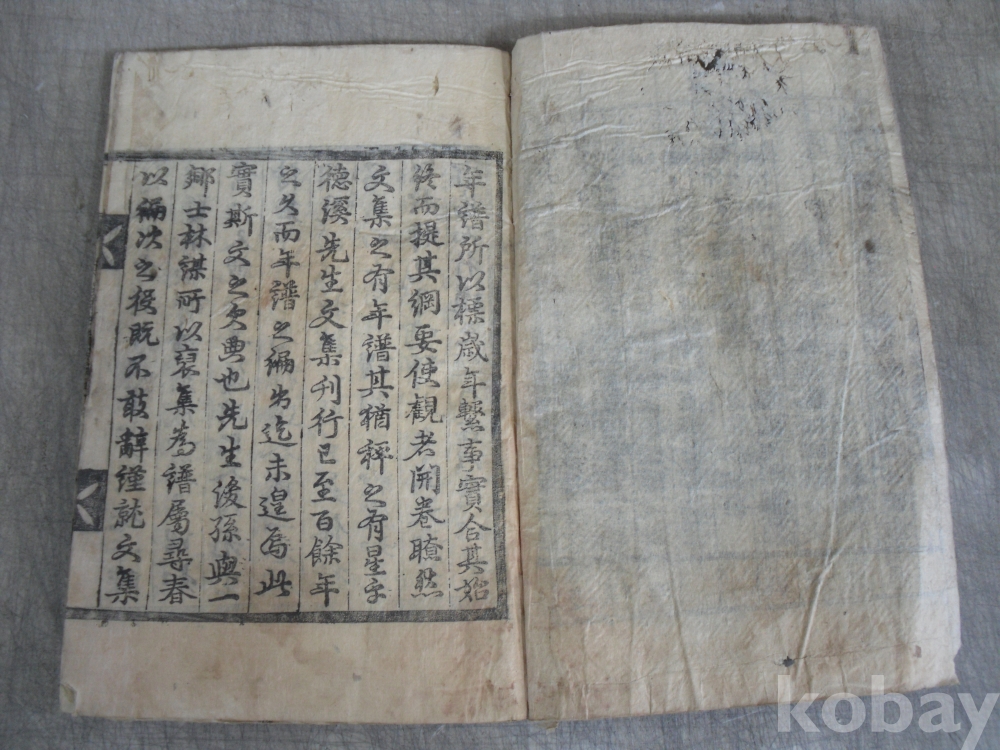 年譜所以標歲年繫事實合其始
終而提其綱要使觀者開卷瞭然
文集之有年譜其猶秤之有星乎
德溪先生文集刊行已至百餘年
之久而年譜之編尚迄未遑焉此
實斯文之欠典也先生後孫與一
鄉士林謀所以裒集爲譜屬尋春
以編次之役既不敢辭謹就文集
kobay